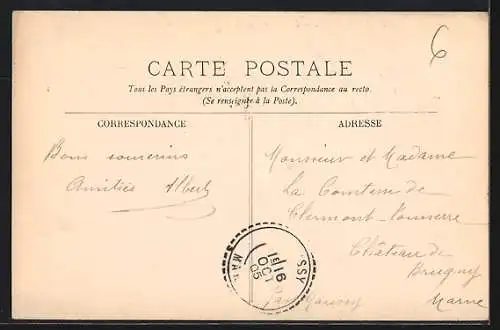 6
CARTE POSTALE
Tous les Pays étrangers n'acceptent pas la Correspondance au recto.
(Se renseigner à la Poste).
CORRESPONDANCE
Bons souvenirs
Amitiés Albert
ADRESSE
Monsieur et Madame
La Comtesse de
Clermont-Tonnerre
Château de
Brugny
par Maussy
Marne
SSY
16
OCT
05
MAR